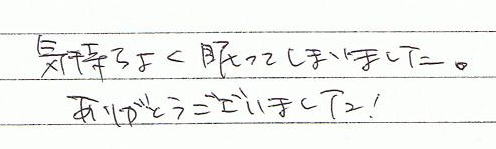 気持ちよく眠ってしまいました。
ありがとうございました!